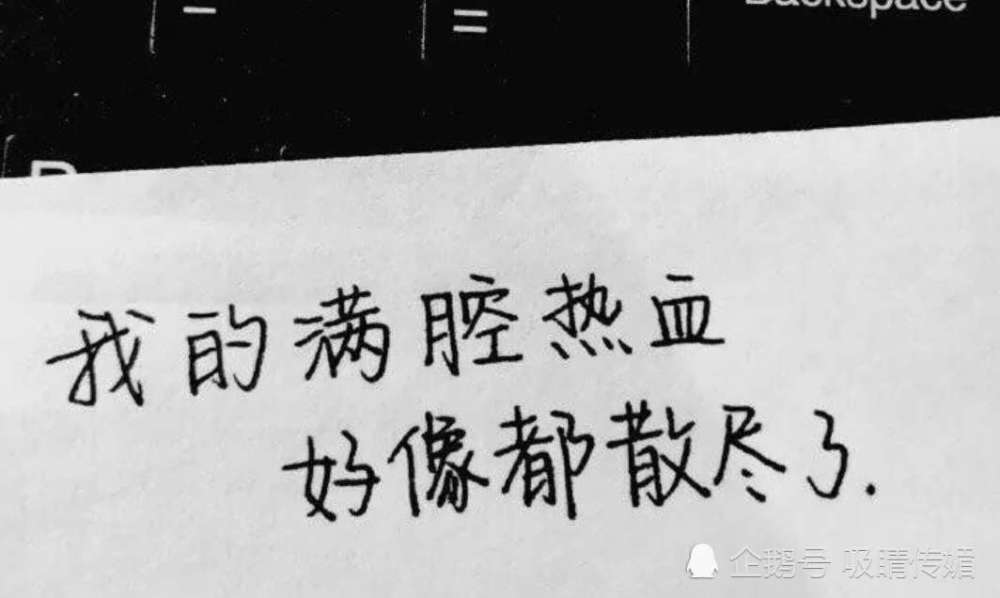 -
=
Backspace
我的满腔热血
好像都散尽了.
企鹅号 吸睛传媒